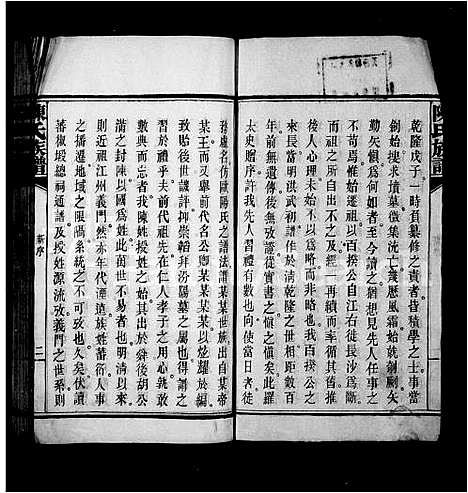 陳氏族譜
乾隆戊子一時負纂修之責者皆積學之士事當
創始搜求墳墓徵集洗亡蓋歷風霜始就剞劂矣
勤矢愼爲何如者至今讀之猶想見先人任事之
不苟焉惟始遷祖以百揆公自江右徙長沙爲斷
不祖其所自出不之及居今一再續而率循其舊推
來長當明洪武初譜作於淸乾隆之世相距數百
後人心理未始不以爲略而非略也我百揆公之
年前無遺傳後無攷證從實書之愼之愼矣此羅
太史贈序許我先人習禮者數也向使當日者徒
務虛名仿歐陽氏之譜法某某世族出自某帝
某王而又舉前代名公卿某某某以炫耀於編
致貽後世譏評拜崇韜拜汾陽墓之屬也所謂
習於禮乎夫前代祖先在仁人孝子之用心就靳
數典而忘者我陳姓授姓之始其出於舜後胡公
滿之封陳以國爲姓此萬世不易者也明淸以來
則近祖江州義門然亦年代湮遠族姓蕃衍人事
之播遷地域之限隔系統之不可攷也久矣伏讀
蕃椒塅總祠通譜及授姓源流攷義門之世系則
陳氏族譜
新序
二